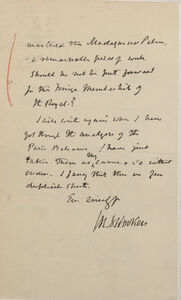 mastered the Madagascar Palms,
- a remarkable piece of work.
Should he not be put forward
for the Foreign Membership of
the Royal?
I will write again when I have
got through the analyses of the
Paris Balsams. I have just
taken them as they came, i.e. without
order. I fancy that there are few
duplicate sheets.
Ever sincerely yrs
J. D. Hooker